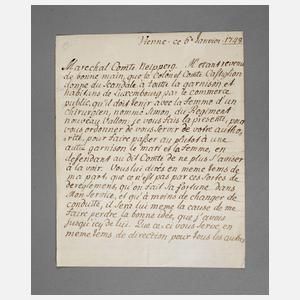 Vienne ce 6e Janvier 1748
Marechal Comte Neipperg. M'etant revenu
de bonne main, que le Colonel Comte Castiglion
donne du Scandale a toutte la garnison et
habitans de Luxembourg par le commerce
public, qu'il doit tenir avec la femme d'un
Chirurgien, nommé Simon, du Regiment
nouveau Vallon, je vous fais la presente, pour
vous ordonner de vous servir de votre autho
rité, pour faire passer au plutôt à une
autre garnison le mari et la femme, en
defendant au dit Comte de ne plus s'aviser
à la voir. Vous lui dirés en meme tems de
ma part, que ce n'est pas par ces sortes de
dereglemens, qu'on fait sa fortune dans
Mon service, et qu'à moins de changer de
conduite, il sera lui meme la cause de me
faire perdre la bonne idée, que j'avois
jusqu'icy de lui. Que ce-ci vous serve en
meme tems de direction pour tous les autres